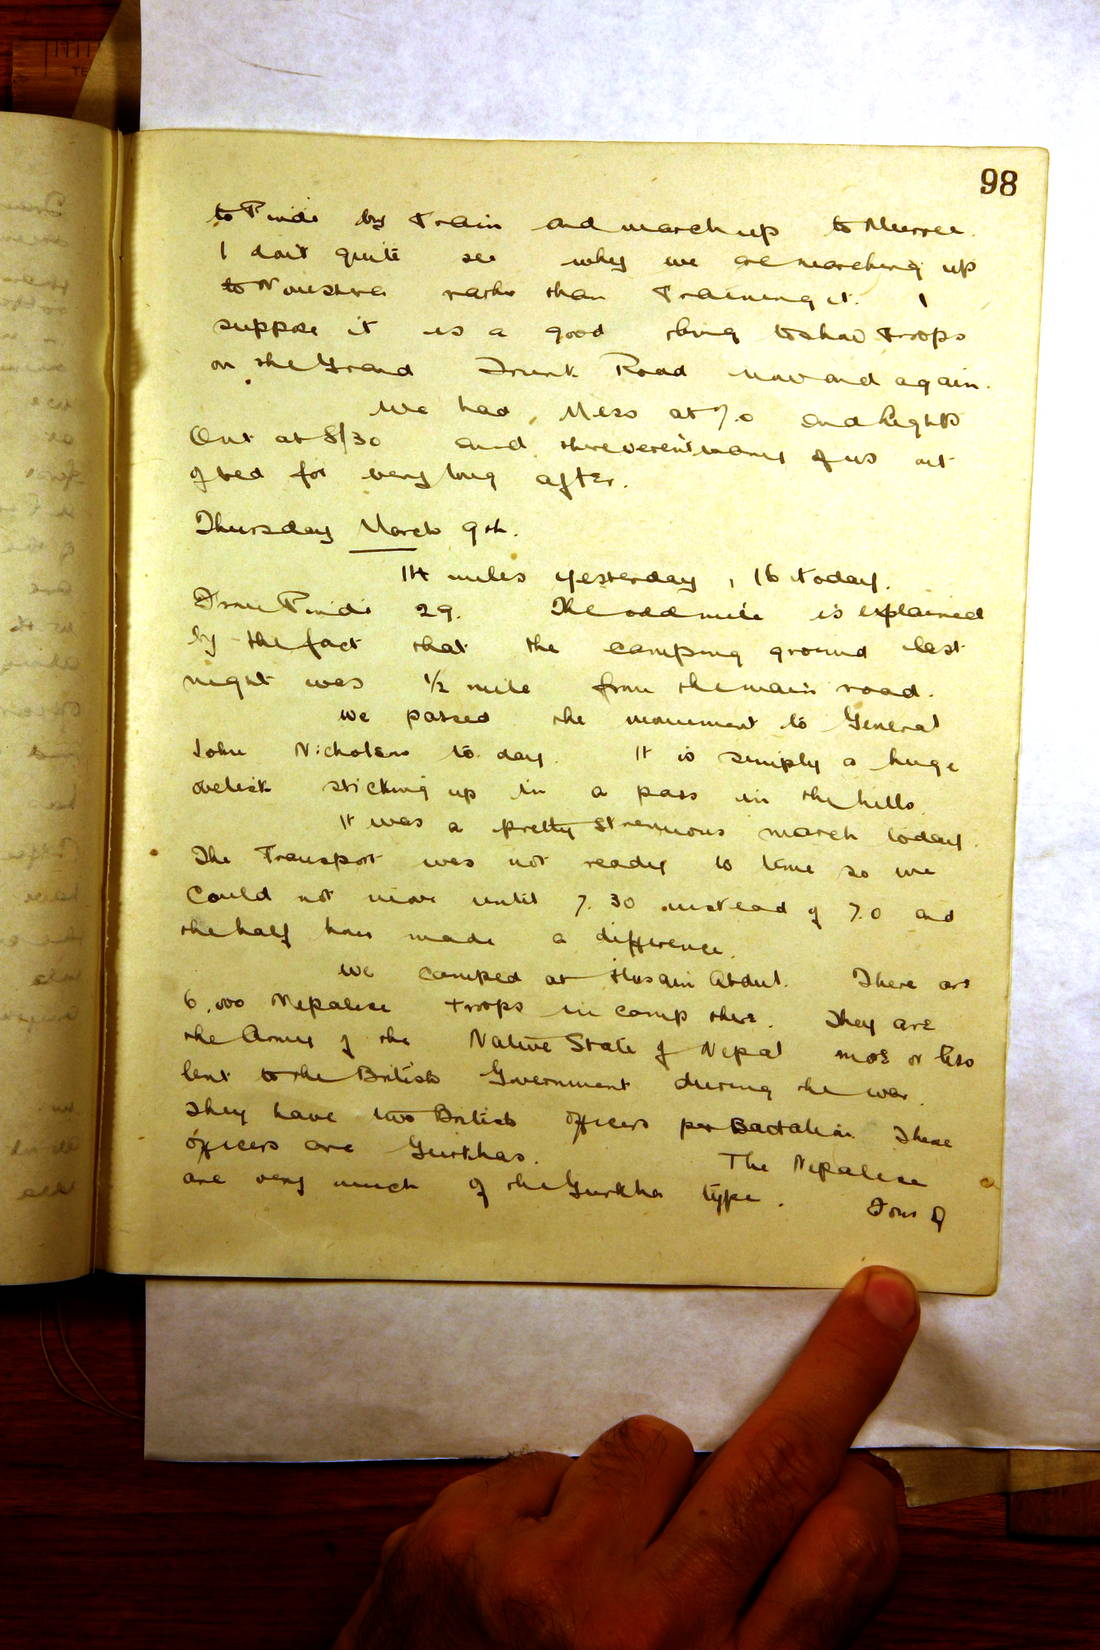 98
to Pindi by Train and march up to Murree.
I don't quite see why we are marching up
to Nowshera rather than Training it. I
suppose it is a good thing to show troops
on the Grand Trunk Road now and again.
We had Mess at 7.0 and Lights
Out at 8/30 and there weren't many of us out
of bed for very long after.
Thursday March 9th.
14 miles yesterday, 16 today.
From Pindi 29. The odd mile is explained
by the fact that the camping ground last
night was ½ mile from the main road.
We passed the monument to General
John Nicholson to day. It is simply a huge
obelisk sticking up in a pass in the hills.
It was a pretty strenuous march today.
The Transport was not ready to time so we
could not move until 7.30 instead of 7.0 and
the half hour made a difference.
We camped at Husain Abdul. There are
6,000 Nepalese troops in camp there. They are
the Army of the Native State of Nepal more or less
lent to the British Government during the war.
They have two British officers per Battalion. These
officers are Gurkhas. The Nepalese
are very much of the Gurkha type. Four of